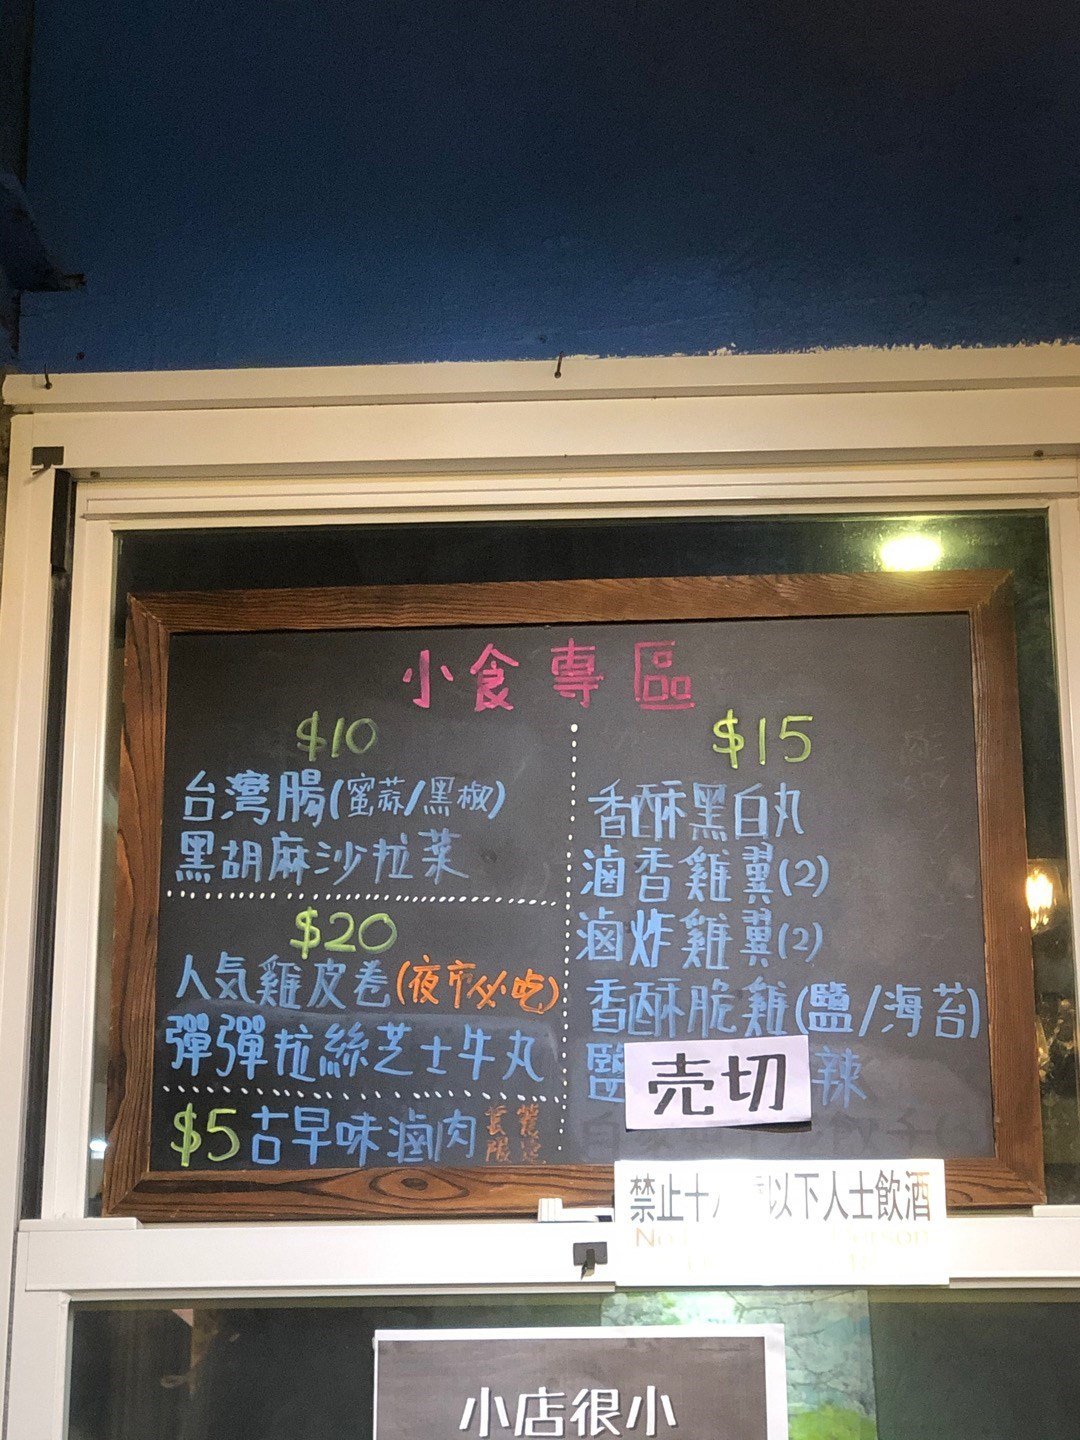 小食專區
$10
台灣腸(蜜蒜/黑椒)
黑胡麻沙拉菜
$20
人気雞皮卷(夜市必吃)
彈彈拉絲芝士牛丸
$5 古早味滷肉
$15
香酥黑白丸
滷香雞翼(2)
滷炸雞翼(2)
香酥脆雞(鹽/海苔)
辣
売切
禁止十八 以下人士飲酒
No
小店很小